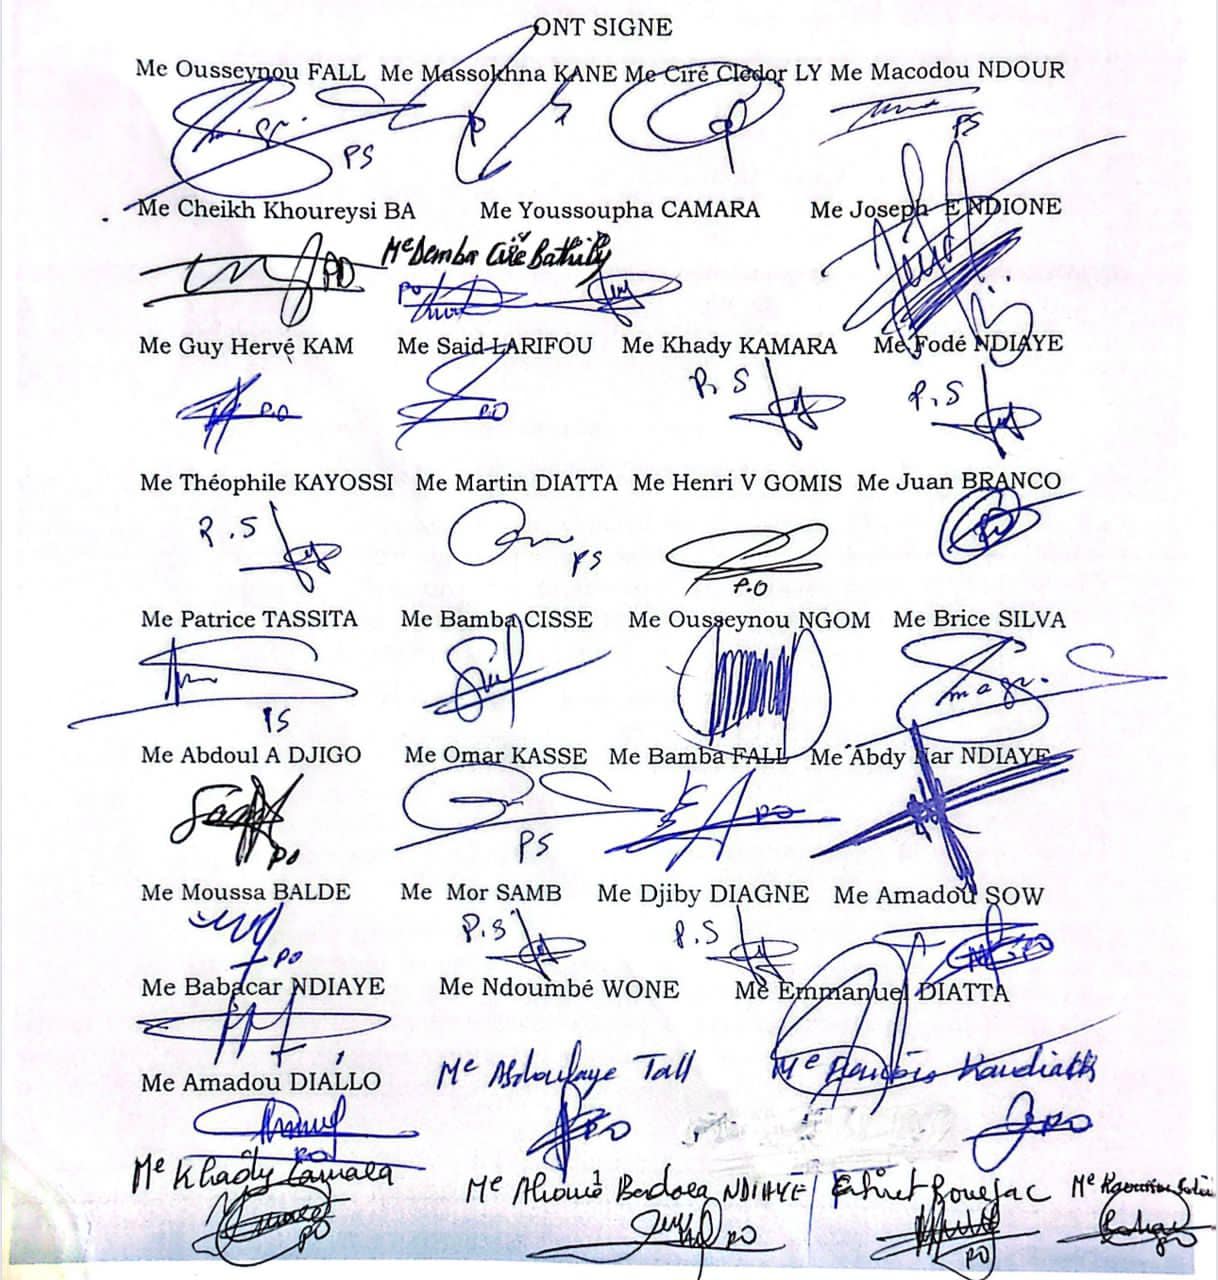 ONT SIGNE
Me Ousseynou FALL Me Massokhna KANE Me Ciré Clédor LY Me Macodou NDOUR
PS PS
Me Cheikh Khoureysi BA Me Youssoupha CAMARA Me Joseph E NDIONE
PO Me Demba Ciré Bathily
PO
Me Guy Hervé KAM Me Said LARIFOU Me Khady KAMARA Me Fodé NDIAYE
P.O P.O P.S P.S
Me Théophile KAYOSSI Me Martin DIATTA Me Henri V GOMIS Me Juan BRANCO
P.S PS P.O
Me Patrice TASSITA Me Bamba CISSE Me Ousseynou NGOM Me Brice SILVA
PS
Me Abdoul A DJIGO Me Omar KASSE Me Bamba FALL Me Abdy Nar NDIAYE
PO PS PO
Me Moussa BALDE Me Mor SAMB Me Djiby DIAGNE Me Amadou SOW
PO P.S P.S PO
Me Babacar NDIAYE Me Ndoumbé WONE Me Emmanuel DIATTA
Me Amadou DIALLO Me Abdoulaye Tall Me
PO PO PO
Me Khady Camara Me NDIAYE Me
PO PO PO